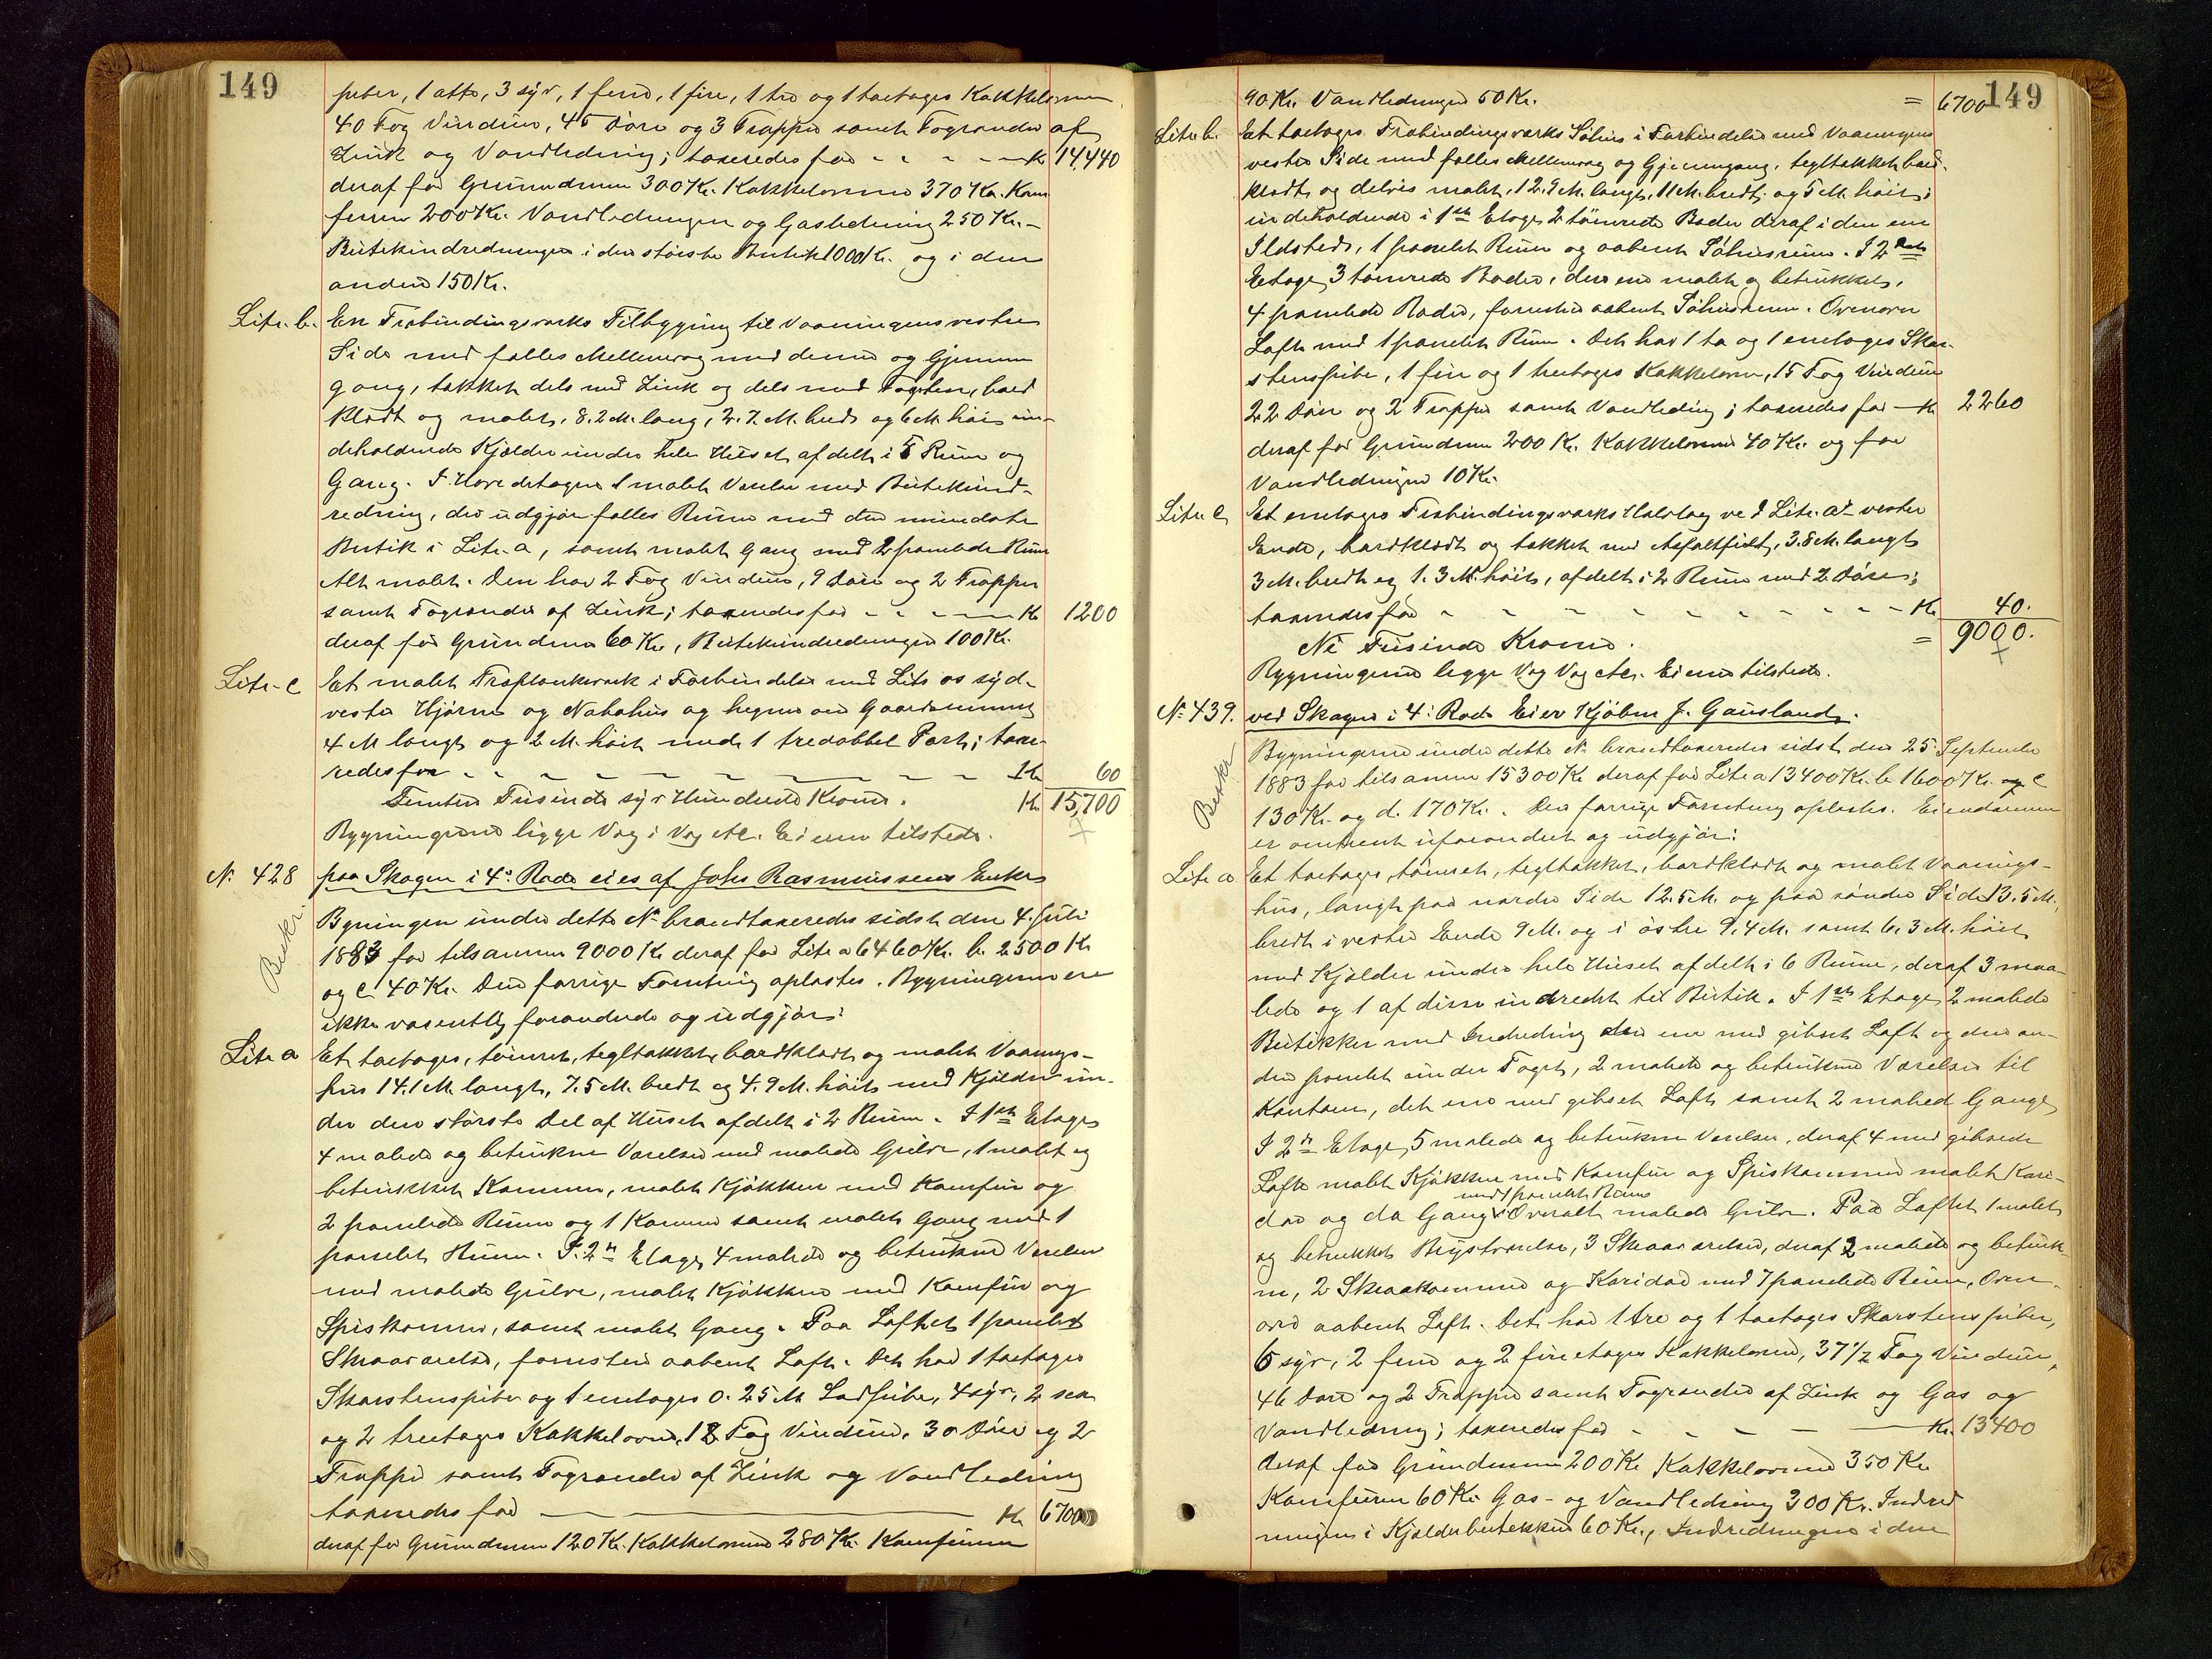 149
piber, 1 otte, 3 syv, 1 fem, 1 fire, 1 tre og 1 toetages Kakkelovne
40 Fag Vinduer, 45 Döre og 3 Trapper samt Tagrender af
Zink og Vandledning; taxeredes for - - - - Kr 14,440
deraf for Grundmuren 300 Kr. Kakkelovnene 370 Kr. Kom
furen 200 Kr. Vandledningen og Gasledning 250 Kr. -
Butikindredningen i den störste Butik 1000 Kr. og i den
anden 150 Kr.
Litr. b. En Trebindingsværks Tilbygning til Vaaningens vestre
Side med fælles Mellemvæg med denne og Gjennem
gang, tækket dels med Zink og dels med Tagsten, bord
klædt og malet, 8.2 M. lang, 2.7 M. bred og 6 M. höi in-
deholdende Kjælder under hele Huset afdelt i 5 Rum og
Gang. I Hovedetagen 1 malet Værelse med Butikind-
redning, der udgjör fælles Rum med den mindste
Butik i Litr. a, samt malet Gang med 2 panelede Rum
Alt malet. Den har 2 Fag Vinduer, 9 Döre og 2 Trapper
samt Tagrender af Zink; taxeredes for - - - - Kr 1200
deraf for Grundmur 60 Kr, Butikindredningen 100 Kr.
Litr. c Et malet Træplankeværk i Forbindelse med Litr as syd-
vestre Hjörne og Nabohus og hegner om Gaardsrummet
4 M langt og 2 M. höit med 1 tredobbel Port; taxe-
redes for - - - - - - - - Kr 60
Femten Tusinde syv Hundrede Kroner. Kr. 15,700
Bygningerne ligge Væg i Væg etc. Eieren tilstede.
No. 428 paa Skagen i 4de Rode eies af Johs Rasmussens Enke
Beskr.
Bygningen under dette No brandtaxeredes sidst den 4. Juli
1883 for tilsammen 9000 Kr deraf for Litr a 6460 Kr. b. 2500 Kr
og c 40 Kr. Den forrige Forretning oplæstes. Bygningerne ere
ikke væsentlig forandrede og udgjör:
Litr. a Et toetages, tömret, tegltækket, bordklædt og malet Vaanings-
hus 14.1 M. langt, 7.5 M. bredt og 4.9 M. höit med Kjælder un-
der den störste Del af Huset afdelt i 2 Rum. I 1ste Etage
4 malede og betrukne Værelser med malede Gulve, 1 malet og
betrukket Kammer, malet Kjökken med Komfur og
2 panelede Rum og 1 Kammer samt malet Gang med 1
panelet Rum. I 2den Etage 4 malede og betrukne Værelser
med malede Gulve, malet Kjökken med Komfur og
Spiskammer, samt malet Gang. Paa Loftet 1 panelet
Skraaværelse, forresten aabent Loft. Det har 1 toetages
Skorstenspibe og 1 enetages 0.25 M Ladpibe, 4 syv, 2 sex
og 2 treetages Kakkelovne, 18 Fag Vinduer, 30 Döre og 2
Trapper samt Tagrender af Zink og Vandledning
taxeredes for - Kr 6700
deraf for Grundmuren 120 Kr. Kakkelovnene 280 Kr. Komfuren
149
90 Kr. Vandledningen 50 Kr. = 6700
Litr. b. Et toetages Trebindingsværks Söhus i Forbindelse med Vaaningens
vestre Side med fælles Mellemvæg og Gjennemgang, tegltækket, bord-
klædt og delvis malet, 12.9 M. langt, 11 M. bredt og 5 M. höit;
indeholdende i 1ste Etage 2 tömrede Boder deraf i den ene
Ildsted, 1 panelet Rum og aabent Söhusrum. I 2den
Etage 3 tömrede Boder, den ene malet og betrukket,
4 panelede Boder, forresten aabent Söhusrum. Ovenover
Loft med 1 panelet Rum. Det har 1 to og 1 enetages Skor-
stenspibe, 1 fire og 1 treetages Kakkelovn, 15 Fag Vinduer
22 Döre og 2 Trapper samt Vandledning; taxeredes for - Kr. 2260
deraf for Grundmur 200 Kr. Kakkelovnene 40 Kr. og for
Vandledningen 10 Kr.
Litr. c Et enetages Trebindingsværks Halvtag ved Litr. a's vestre
Ende, bordklædt og tækket med Asfaltfilt, 3.8 M. langt
3 M. bredt og 1.3 M. höit, afdelt i 2 Rum med 2 Döre;
taxeredes for - - - - - - - - Kr. 40.
Ni Tusinde Kroner. = 9000.
Bygningerne ligge Væg i Væg etc. Eieren tilstede.
No. 439. ved Skagen i 4de Rode Eier Kjöbm J. Gausland.
Beskr
Bygningerne under dette No. brandtaxeredes sidst den 25 September
1883 for tilsammen 15300 Kr deraf for Litr a 13400 Kr. b. 1600 Kr. c
130 Kr. og d. 170 Kr. Den forrige Forretning oplæstes. Eiendommen
er omtrent uforandret og udgjör:
Litr. a Et toetages, tömret, tegltækket, bordklædt og malet Vaanings-
hus, langt paa nordre Side 12.5 M. og paa söndre Side 13.5 M.,
bredt i vestre Ende 9 M. og i östre 9.4 M. samt 6.3 M. höit
med Kjælder under hele Huset afdelt i 6 Rum, deraf 3 maa-
lede og 1 af disse indredet til Butik. I 1ste Etage 2 malede
Butikker med Indredning den ene med gibset Loft og den an-
den panelet under Taget, 2 malede og betrukne Værelser til
Kontorer, det ene med gibset Loft samt 2 malede Gange
I 2den Etage 5 malede og betrukne Værelser, deraf 4 med gibsede
Lofte malet Kjökken med Komfur og Spiskammer malet Kori-
med 1 panelet Rum
dor og do Gang. Overalt malede Gulve. Paa Loftet 1 malet
og betrukket Kvistværelse, 3 Skraaværelser, deraf 2 malede og betruk-
ne, 2 Skraakammere og Koridor med 7 panelede Rum, Oven-
over aabent Loft. Det har 1 tre og 1 toetages Skorstenspiber,
6 syv, 2 fem og 2 fireetages Kakkelovne, 37 1/2 Fag Vinduer,
46 Döre og 2 Trapper samt Tagrender af Zink og Gas og
Vandledning; taxeredes for - - - - Kr. 13400
deraf for Grundmuren 200 Kr Kakkelovnene 350 Kr
Komfuren 60 Kr. Gas- og Vandledning 300 Kr. Indred
ningen i Kjælderbutikken 60 Kr., Indredningen i den